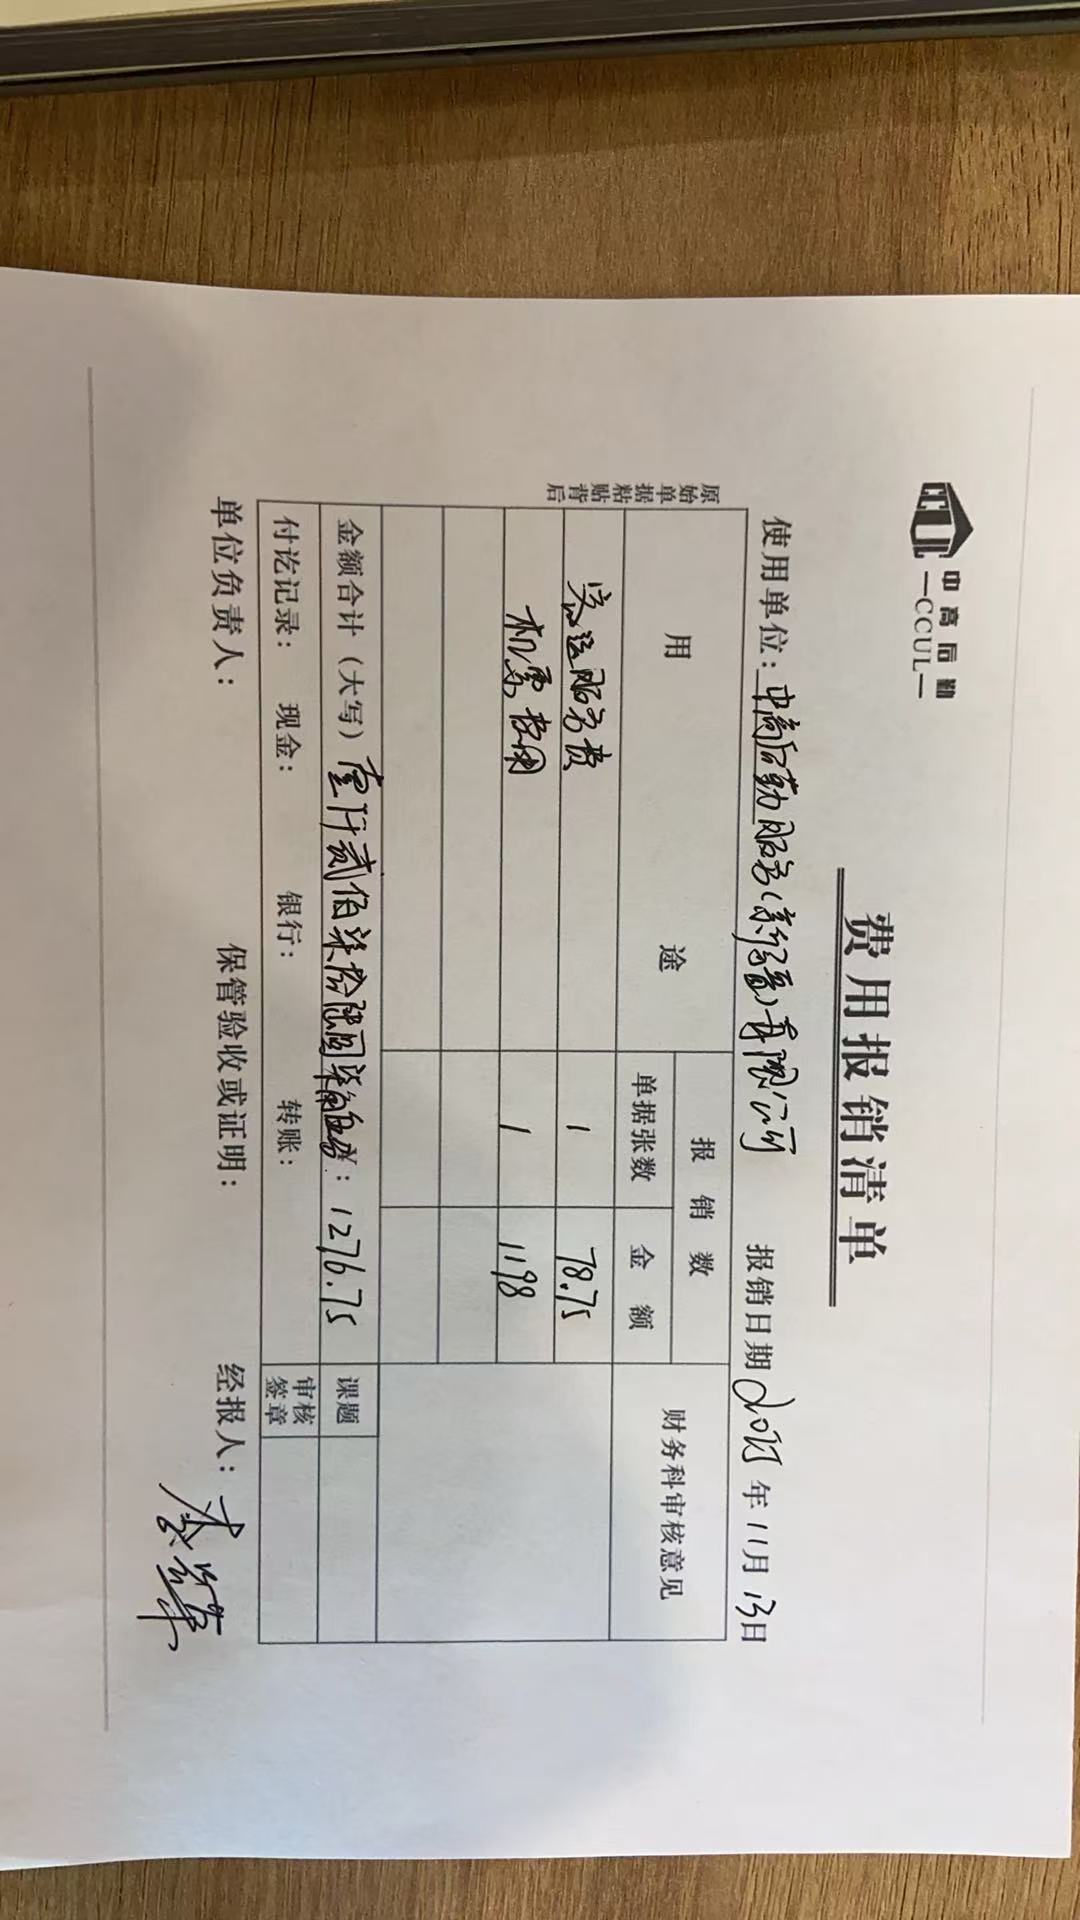 中高后勤
—CCUL—
费用报销清单
使用单位：中高后勤服务（新疆）有限公司 报销日期 2025 年 11 月 13 日
原始单据粘贴背后
用 途 报 销 数 财务科审核意见
单据张数 金 额
客运服务费 1 78.75
机票费用 1 1198
金额合计（大写）壹仟贰佰柒拾陆圆柒角伍分：1276.75 课题
付讫记录： 现金： 银行： 转账： 审核签章
单位负责人： 保管验收或证明： 经报人：